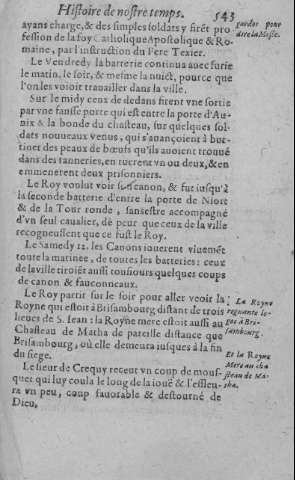 Histoire de nostre temps. 543
ayans charge, & des simples soldats y firẽt pro
fession de la foy Catholique Apostolique & Ro-
maine, par l'instruction du Pere Texier.
Le Vendredy la batterie continua avec furie
le matin, le soir, & mesme la nuict, pource que
l'on les voioit travailler dans la ville.
Sur le midy ceux de dedans firent vne sortie
par vne fausse porte qui est entre la porte d'Au-
nix & la bonde du chasteau, sur quelques sol-
dats nouueaux venus, qui s'auançoient à bu-
tiner des peaux de bœufs qu'ils auoient trouué
dans des tanneries, en tuerent vn ou deux, & en
emmenerent deux prisonniers.
Le Roy voulut voir son canon, & fut iusqu'à
la seconde batterie d'entre la porte de Niort
& de la Tour ronde, sans estre accompagné
d'vn seul caualier, de peur que ceux de la ville
recogneussent que ce fust le Roy.
Le Samedy 12. les Canons iouerent viuemẽt
toute la matinee, de toutes les batteries: ceux
de la ville tiroiẽt aussi tousiours quelques coups
de canon & fauconneaux.
Le Roy partit sur le soir pour aller veoir la
Royne qui estoit à Brisambourg distant de trois
lieues de S. Iean: la Royne mere estoit aussi au
Chasteau de Matha de pareille distance que
Brisambourg, où elle demeura iusques à la fin
du siege.
Le sieur de Crequy receut vn coup de mous-
quet qui luy coula le long de la iouë & l'esleu-
ra vn peu, coup fauorable & destourné de
Dieu,
garder pour
dire la Messe.
La Royne
regnante lo-
gee à Bri-
sambourg.
Et la Royne
Mere au cha
steau de Ma-
tha.